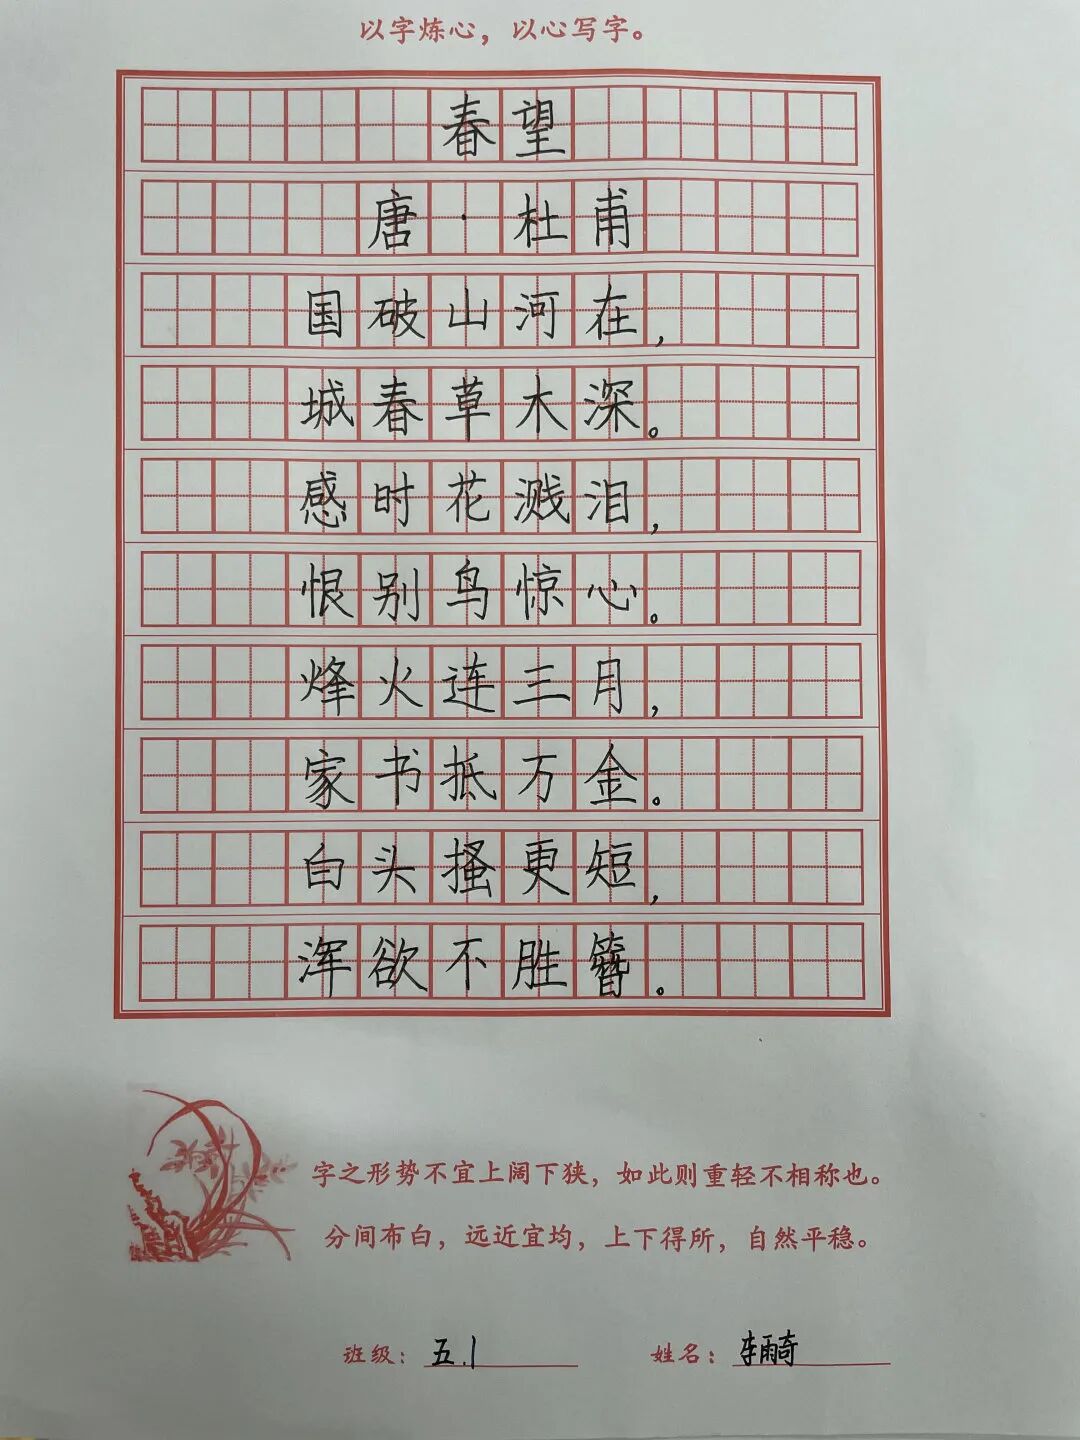 以字炼心，以心写字。
春望
唐·杜甫
国破山河在，
城春草木深。
感时花溅泪，
恨别鸟惊心。
烽火连三月，
家书抵万金。
白头搔更短，
浑欲不胜簪。
字之形势不宜上阔下狭，如此则重轻不相称也。
分间布白，远近宜均，上下得所，自然平稳。
班级：五.1 姓名：李雨奇